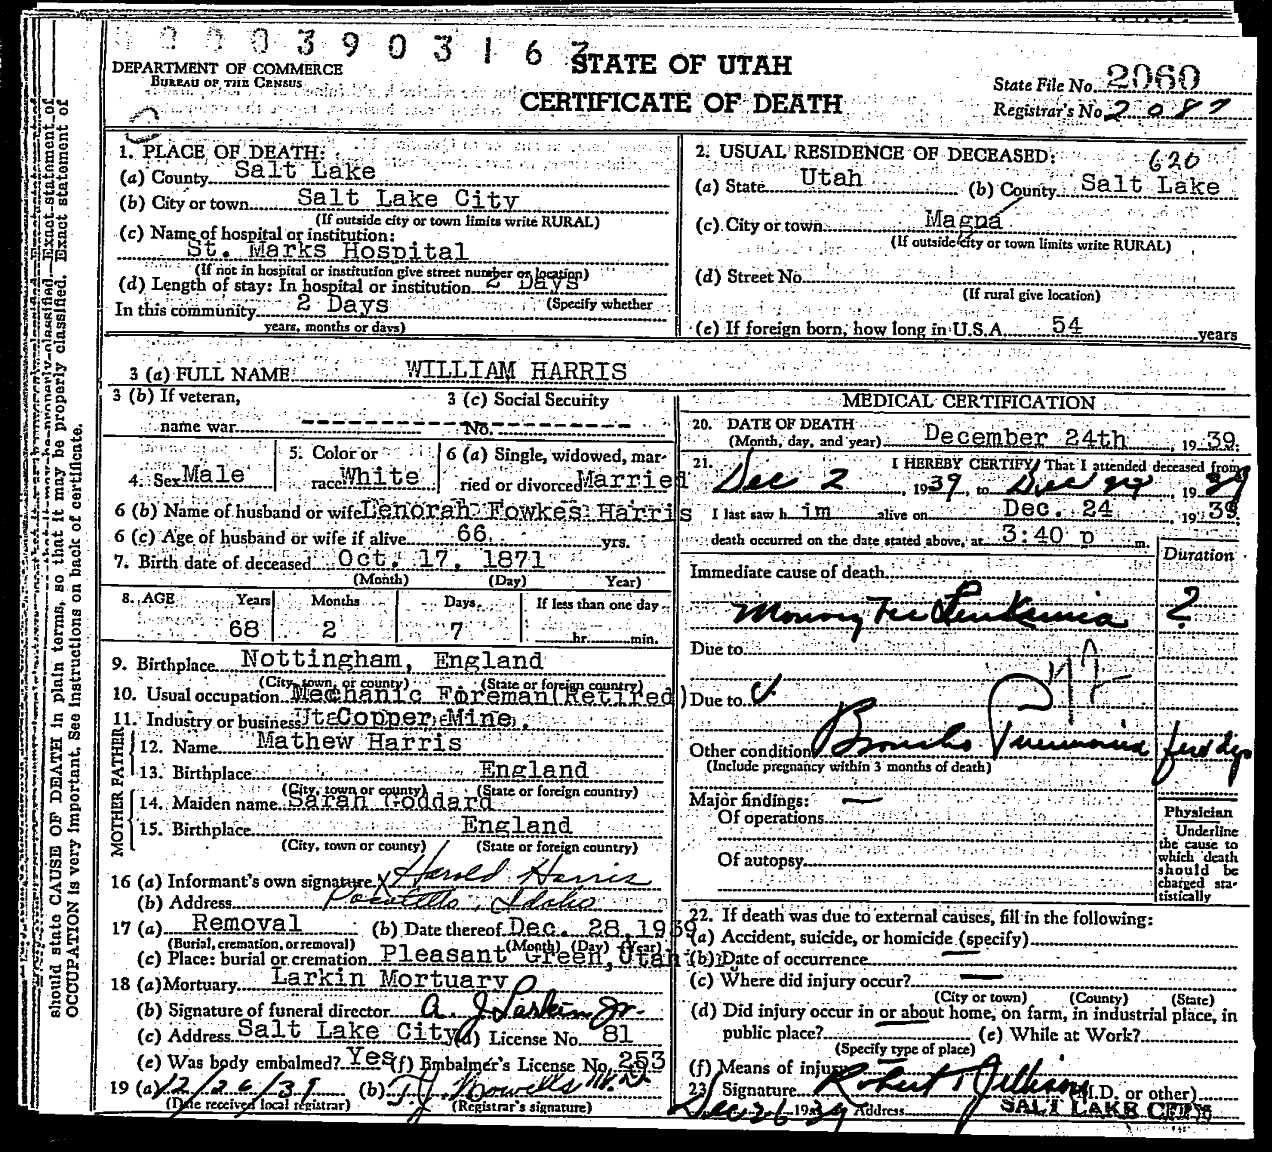 0003903163
STATE OF UTAH
DEPARTMENT OF COMMERCE
BUREAU OF THE CENSUS
CERTIFICATE OF DEATH
State File No. 2060
Registrar's No. 2087
1. PLACE OF DEATH:
(a) County Salt Lake
(b) City or town Salt Lake City
(If outside city or town limits write RURAL)
(c) Name of hospital or institution:
St. Marks Hospital
(If not in hospital or institution give street number or location)
(d) Length of stay: In hospital or institution 2 Days
(Specify whether
In this community 2 Days
years, months or days)
2. USUAL RESIDENCE OF DECEASED: 620
(a) State Utah (b) County Salt Lake
(c) City or town Magna
(If outside city or town limits write RURAL)
(d) Street No.
(If rural give location)
(e) If foreign born, how long in U.S.A. 54 years
3 (a) FULL NAME WILLIAM HARRIS
3 (b) If veteran, name war
3 (c) Social Security No.
4. Sex Male
5. Color or race White
6 (a) Single, widowed, married or divorced Married
6 (b) Name of husband or wife Lenorah Fowkes Harris
6 (c) Age of husband or wife if alive 66 yrs.
7. Birth date of deceased Oct. 17, 1871
(Month) (Day) Year)
8. AGE Years Months Days If less than one day
68 2 7 hr. min.
9. Birthplace Nottingham, England
(City, town, or county) (State or foreign country)
10. Usual occupation Mechanic Foreman (Retired)
11. Industry or business Ut. Copper Mine.
FATHER
12. Name Mathew Harris
13. Birthplace England
(City, town or county) (State or foreign country)
MOTHER
14. Maiden name Sarah Goddard
15. Birthplace England
(City, town or county) (State or foreign country)
16 (a) Informant's own signature X Harold Harris
(b) Address Pocatello, Idaho
17 (a) Removal (b) Date thereof Dec. 28, 1939
(Burial, cremation, or removal) (Month) (Day) (Year)
(c) Place: burial or cremation Pleasant Green, Utah
18 (a) Mortuary Larkin Mortuary
(b) Signature of funeral director A. J. Larkin Jr.
(c) Address Salt Lake City (d) License No. 81
(e) Was body embalmed? Yes (f) Embalmer's License No. 253
19 (a) 12/26/39 (b) T. J. Howells M.D.
(Date received local registrar) (Registrar's signature)
MEDICAL CERTIFICATION
20. DATE OF DEATH
(Month, day, and year) December 24th, 1939.
21. I HEREBY CERTIFY, That I attended deceased from
Dec 2, 1939, to Dec 24, 1939
I last saw h im alive on Dec. 24, 1939.
death occurred on the date stated above, at 3:40 p m.
Duration
Immediate cause of death
Leukemia ?
Due to
Due to
Other condition Broncho Pneumonia few days
(Include pregnancy within 3 months of death)
Major findings:
Of operations
Of autopsy
Physician
Underline the cause to which death should be charged statistically
22. If death was due to external causes, fill in the following:
(a) Accident, suicide, or homicide (specify)
(b) Date of occurrence
(c) Where did injury occur?
(City or town) (County) (State)
(d) Did injury occur in or about home, on farm, in industrial place, in
public place? (e) While at Work?
(Specify type of place)
(f) Means of injury
23. Signature Robert Jellison (M.D. or other)
Dec 26 1939 Address SALT LAKE CITY
should state CAUSE OF DEATH in plain terms, so that it may be properly classified. Exact statement of
OCCUPATION is very important. See instructions on back of certificate.